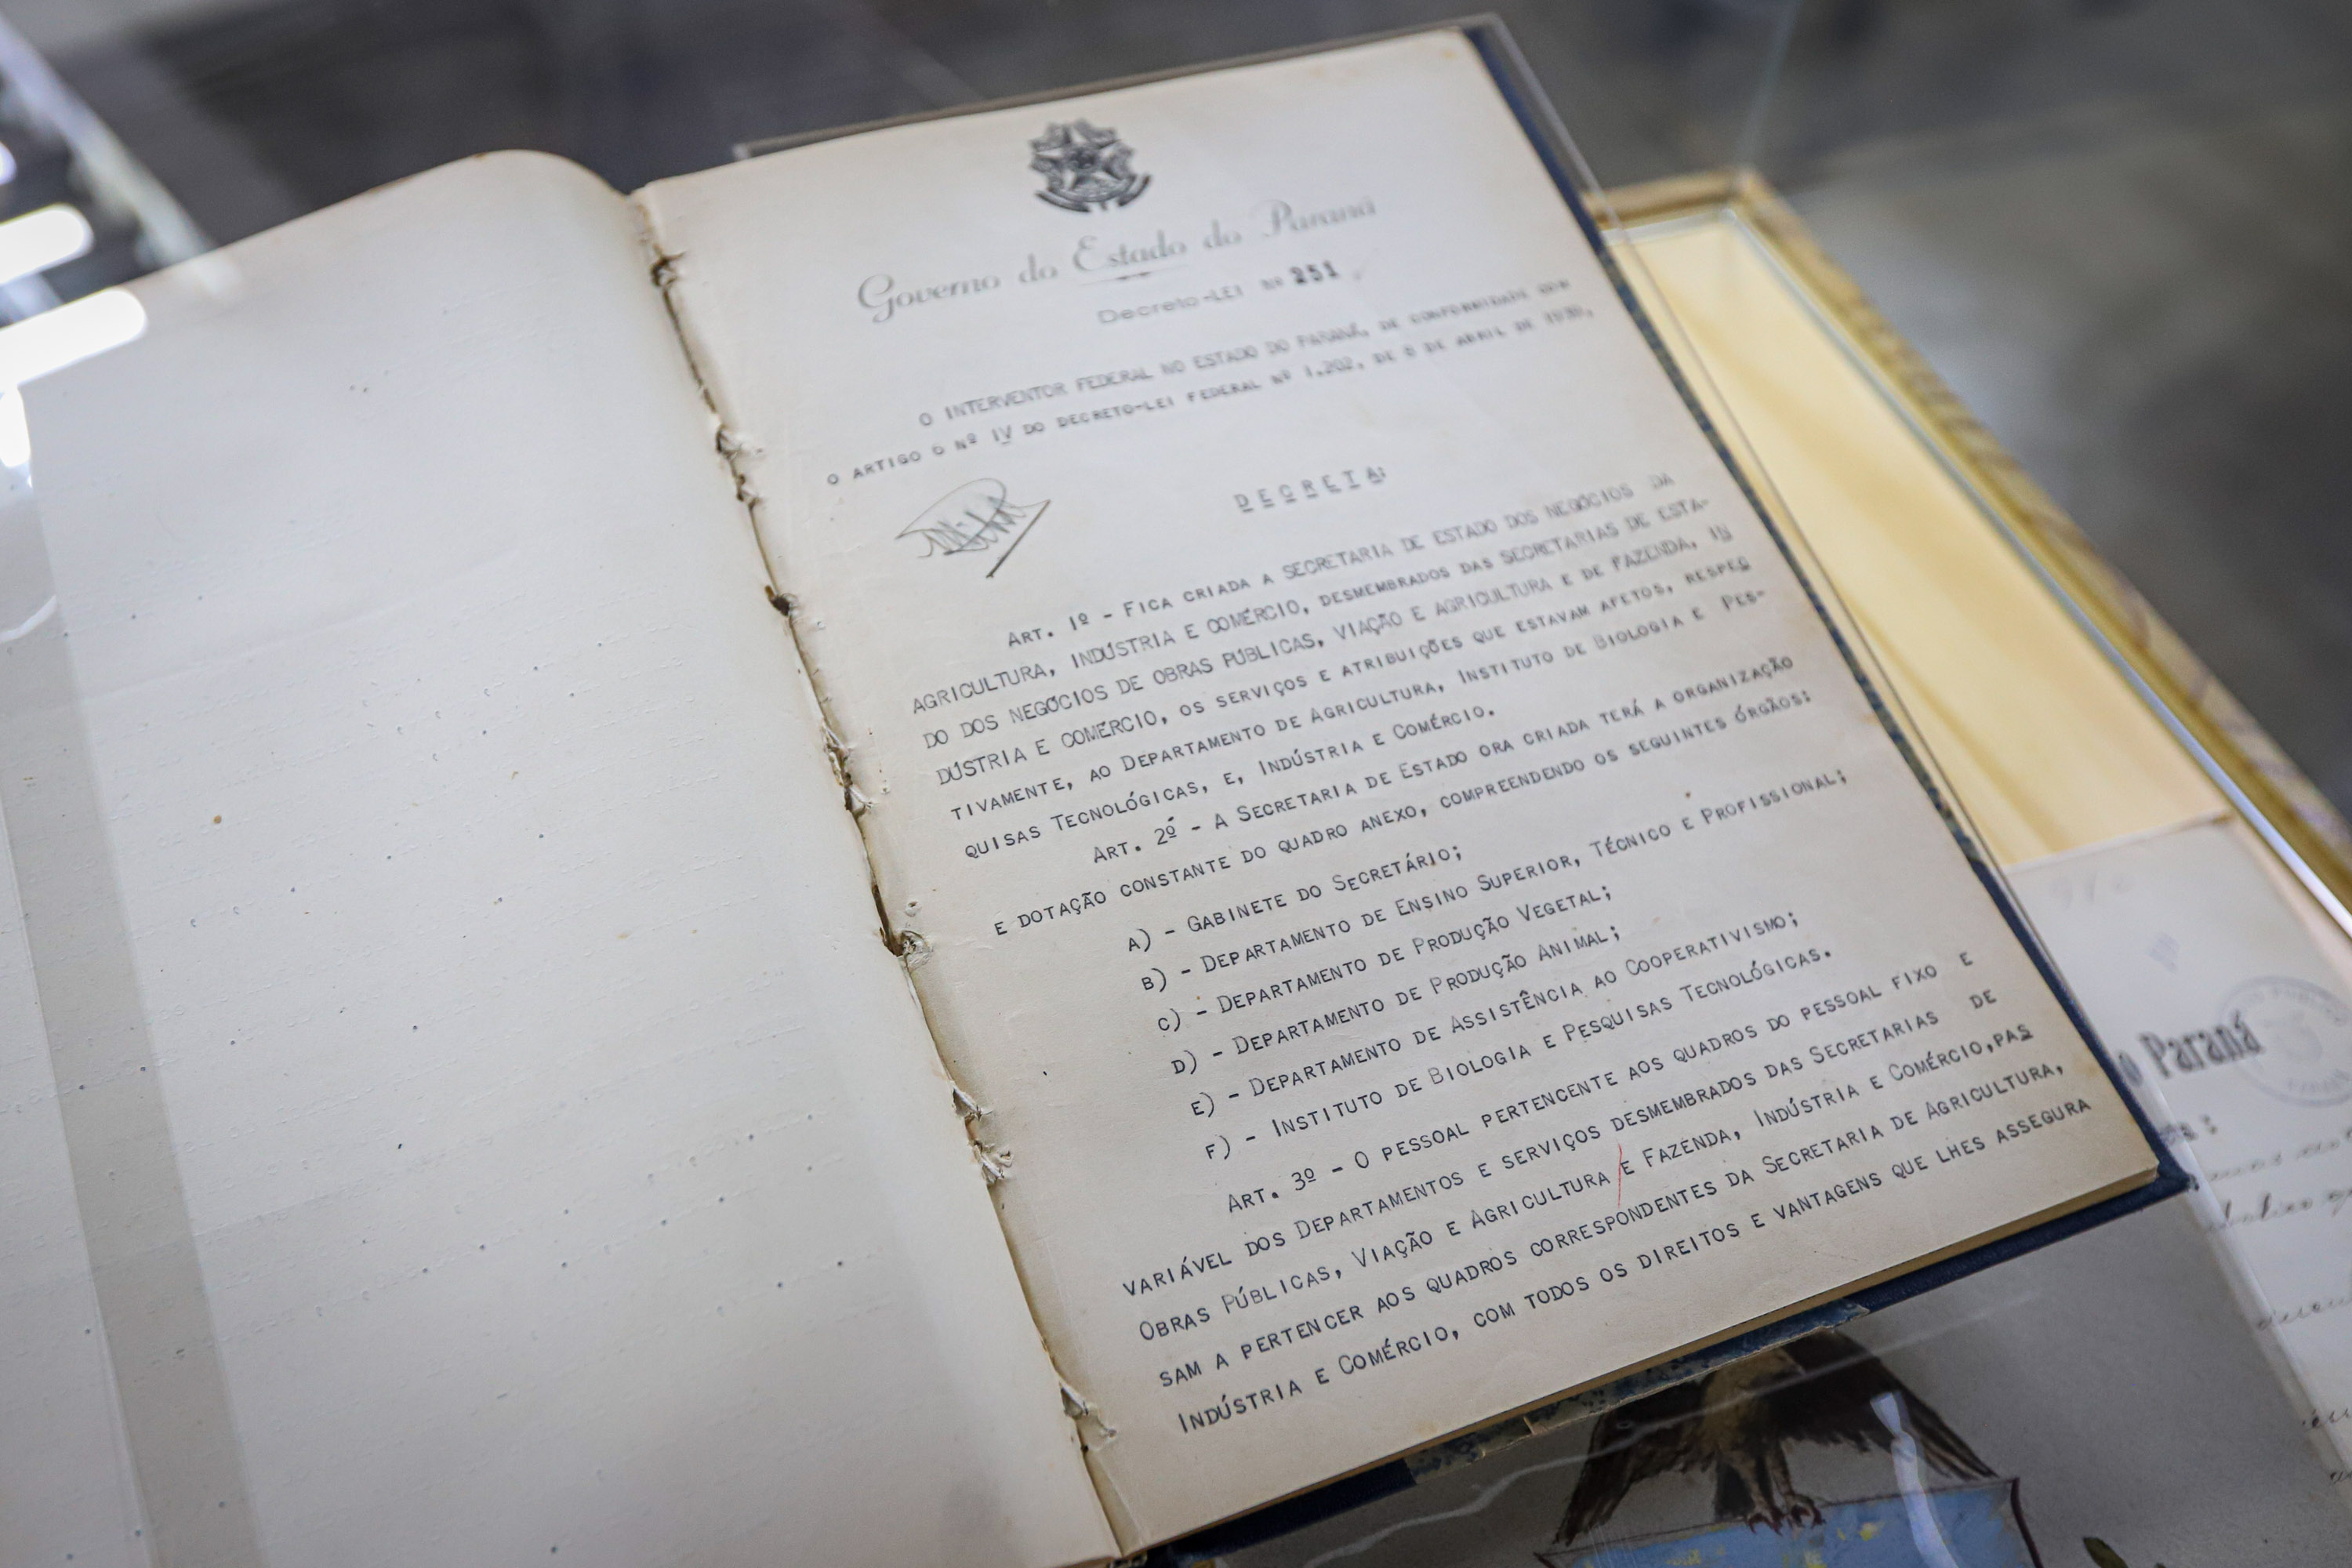 Governo do Estado do Paraná
Decreto-LEI Nº 251
O INTERVENTOR FEDERAL NO ESTADO DO PARANÁ, DE CONFORMIDADE COM
O ARTIGO 6 Nº IV DO DECRETO-LEI FEDERAL Nº 1.202, DE 8 DE ABRIL DE 1939,
DECRETA:
ART. 1º - FICA CRIADA A SECRETARIA DE ESTADO DOS NEGÓCIOS DA
AGRICULTURA, INDÚSTRIA E COMÉRCIO, DESMEMBRADOS DAS SECRETARIAS DE ESTA-
DO DOS NEGÓCIOS DE OBRAS PÚBLICAS, VIAÇÃO E AGRICULTURA E DE FAZENDA, IN
DÚSTRIA E COMÉRCIO, OS SERVIÇOS E ATRIBUIÇÕES QUE ESTAVAM AFETOS, RESPEC
TIVAMENTE, AO DEPARTAMENTO DE AGRICULTURA, INSTITUTO DE BIOLOGIA E PES-
QUISAS TECNOLÓGICAS, E, INDÚSTRIA E COMÉRCIO.
ART. 2º - A SECRETARIA DE ESTADO ORA CRIADA TERÁ A ORGANIZAÇÃO
E DOTAÇÃO CONSTANTE DO QUADRO ANEXO, COMPREENDENDO OS SEGUINTES ÓRGÃOS:
A) - GABINETE DO SECRETÁRIO;
B) - DEPARTAMENTO DE ENSINO SUPERIOR, TÉCNICO E PROFISSIONAL;
C) - DEPARTAMENTO DE PRODUÇÃO VEGETAL;
D) - DEPARTAMENTO DE PRODUÇÃO ANIMAL;
E) - DEPARTAMENTO DE ASSISTÊNCIA AO COOPERATIVISMO;
F) - INSTITUTO DE BIOLOGIA E PESQUISAS TECNOLÓGICAS.
ART. 3º - O PESSOAL PERTENCENTE AOS QUADROS DO PESSOAL FIXO E
VARIÁVEL DOS DEPARTAMENTOS E SERVIÇOS DESMEMBRADOS DAS SECRETARIAS DE
OBRAS PÚBLICAS, VIAÇÃO E AGRICULTURA E FAZENDA, INDÚSTRIA E COMÉRCIO, PAS
SAM A PERTENCER AOS QUADROS CORRESPONDENTES DA SECRETARIA DE AGRICULTURA,
INDÚSTRIA E COMÉRCIO, COM TODOS OS DIREITOS E VANTAGENS QUE LHES ASSEGURA
o Paraná